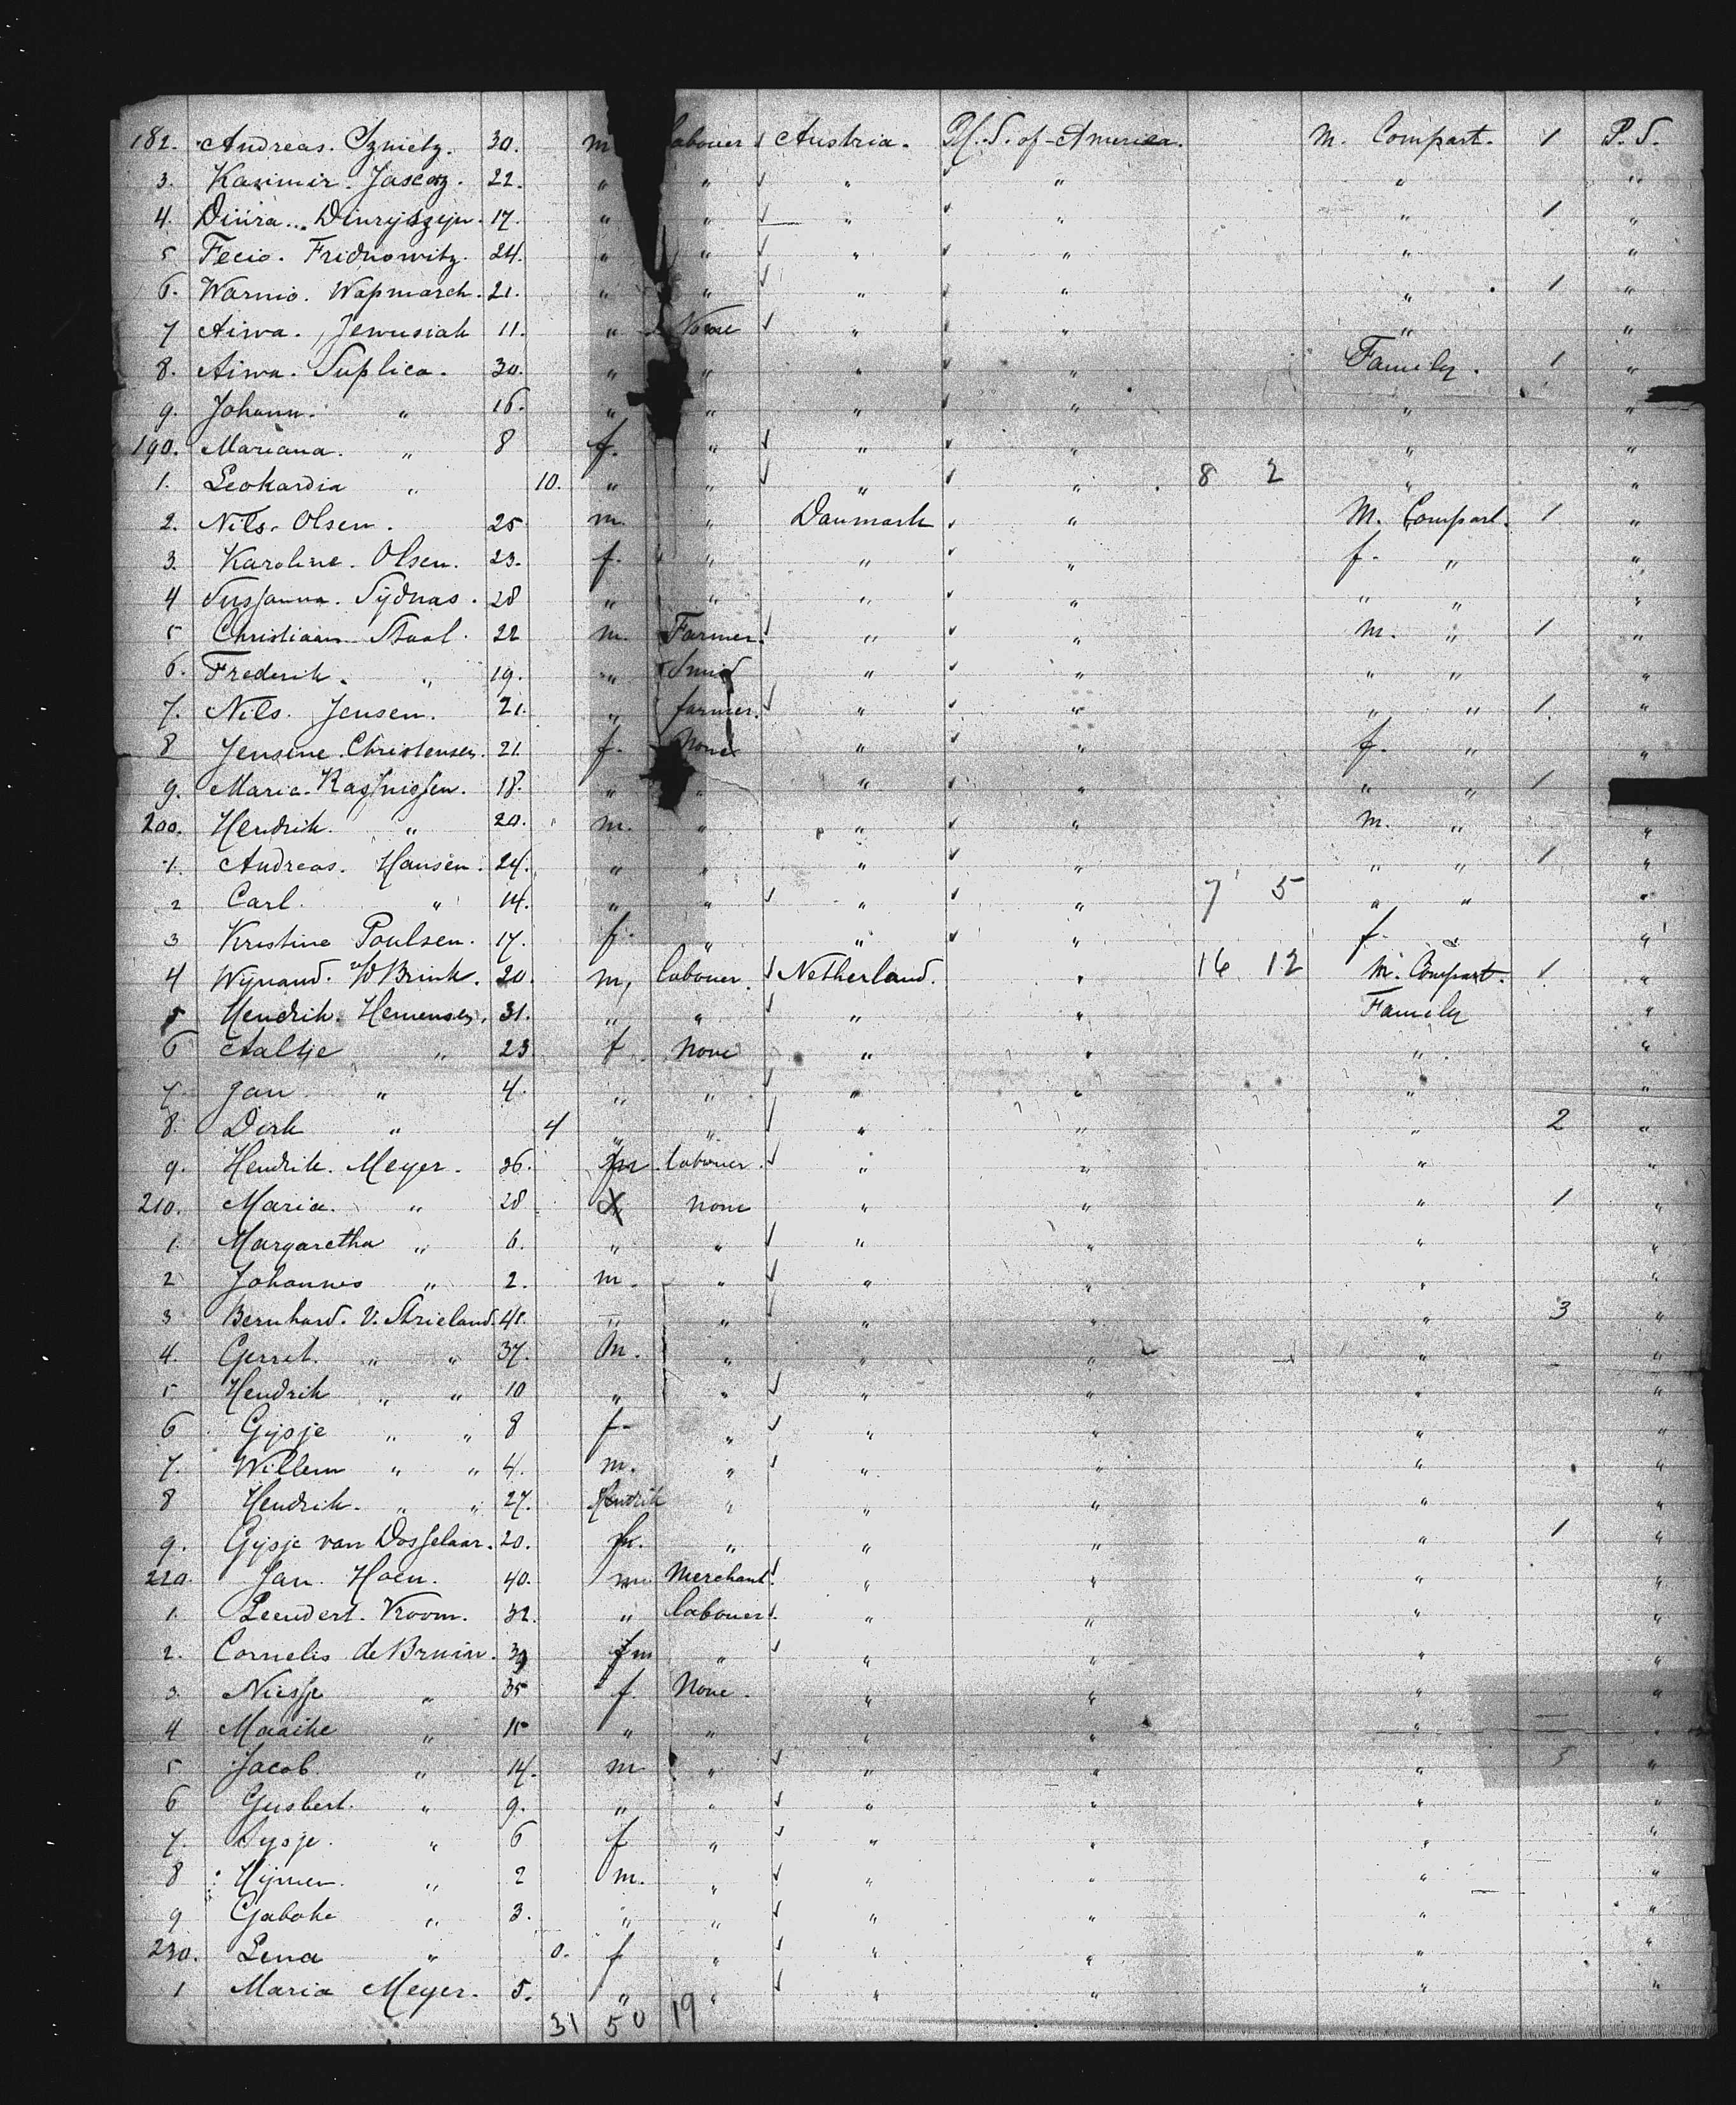 182. Andreas. Szmelz. 30. m labouer Austria. U. S. of America. M. Compart. 1 P. S.
3. Kasimir. 22. " " " " " "
4. Diura... 17. " " " " " 1 "
5 Fecio. Fridnowitz. 24. " " " " " "
6. Warnio. Wapmarch. 21. " " " " " 1 "
7 Aiwa. Jewusiak 11. " None " " " "
8. Aiwa. Suplica. 30. " " " " Family. 1 "
9. Johann. " 16. " " " " " "
190. Mariana. " 8 f. " " " " "
1. Leokardia " 10. " " " " 8 2 " "
2. Nils. Olsen. 25 m. " Danmark " M. Compart. 1 "
3. Karoline. Olsen. 23. f. " " " f. " "
4 Sussanna. Sydnas. 28 " " " " " " "
5 Christiaan Staal. 22 m. Farmer. " " m. " 1 "
6. Frederik. " 19. " Smid " " " " "
7. Nils. Jensen. 21. " farmer. " " " " 1. "
8 Jensine. Christensen. 21. f. None " " f. " "
9. Maria. Rassmissen. 18. " " " " " " 1
200. Hendrik. " 20. m. " " " m. " "
1. Andreas. Hansen. 24. " " " " " " 1 "
2 Carl. " 14. " " " " 7 5 " " "
3 Kristine Poulsen. 17. f. " " " f. " "
4 Wijnand. v/d Brink. 20. m, labouer. Netherland. " 16 12 m. Compart. 1. "
5 Hendrik. Hemensen. 31. " " " " Family "
6 Aaltje " 23 f. None " " " "
7. Jan " 4. " " " " " "
8. Dirk " 4 " " " " " 2 "
9. Hendrik. Meyer. 36. m labouer. " " " "
210. Maria. " 28 none " " " 1 "
1. Margaretha " 6. " " " " " "
2 Johannes " 2. m. " " " " "
3 Bernhard. V. Strieland. 41. " " " " " 3 "
4. Gerret. " " 37. m. " " " " "
5 Hendrik " " 10 " " " " " "
6 Gijsje " " 8 f. " " " " "
7. Willem " " 4. m. " " " " "
8 Hendrik. " " 27. Hendrik " " " " "
9. Gijsje van Dosselaar. 20. " " " " 1 "
220. Jan. Hoen. 40. m Merchant. " " " "
1. Leendert. Vroom. 32. " labouer. " " " "
2. Cornelis de Bruin. 39 m " " " " "
3. Niesje " 35 f. None. " " " "
4 Maaike " 15 " " " " " "
5 Jacob. " 14. m " " " " 3 "
6 Gusbert. " 9. " " " " " "
7. Sysje. " 6 f " " " " "
8 Hijmen. " 2 m. " " " " "
9 Gaboke " 3. " " " " " "
230. Lena " 0. f " " " " "
1 Maria Meyer. 5. " " " " " "
31 50 19